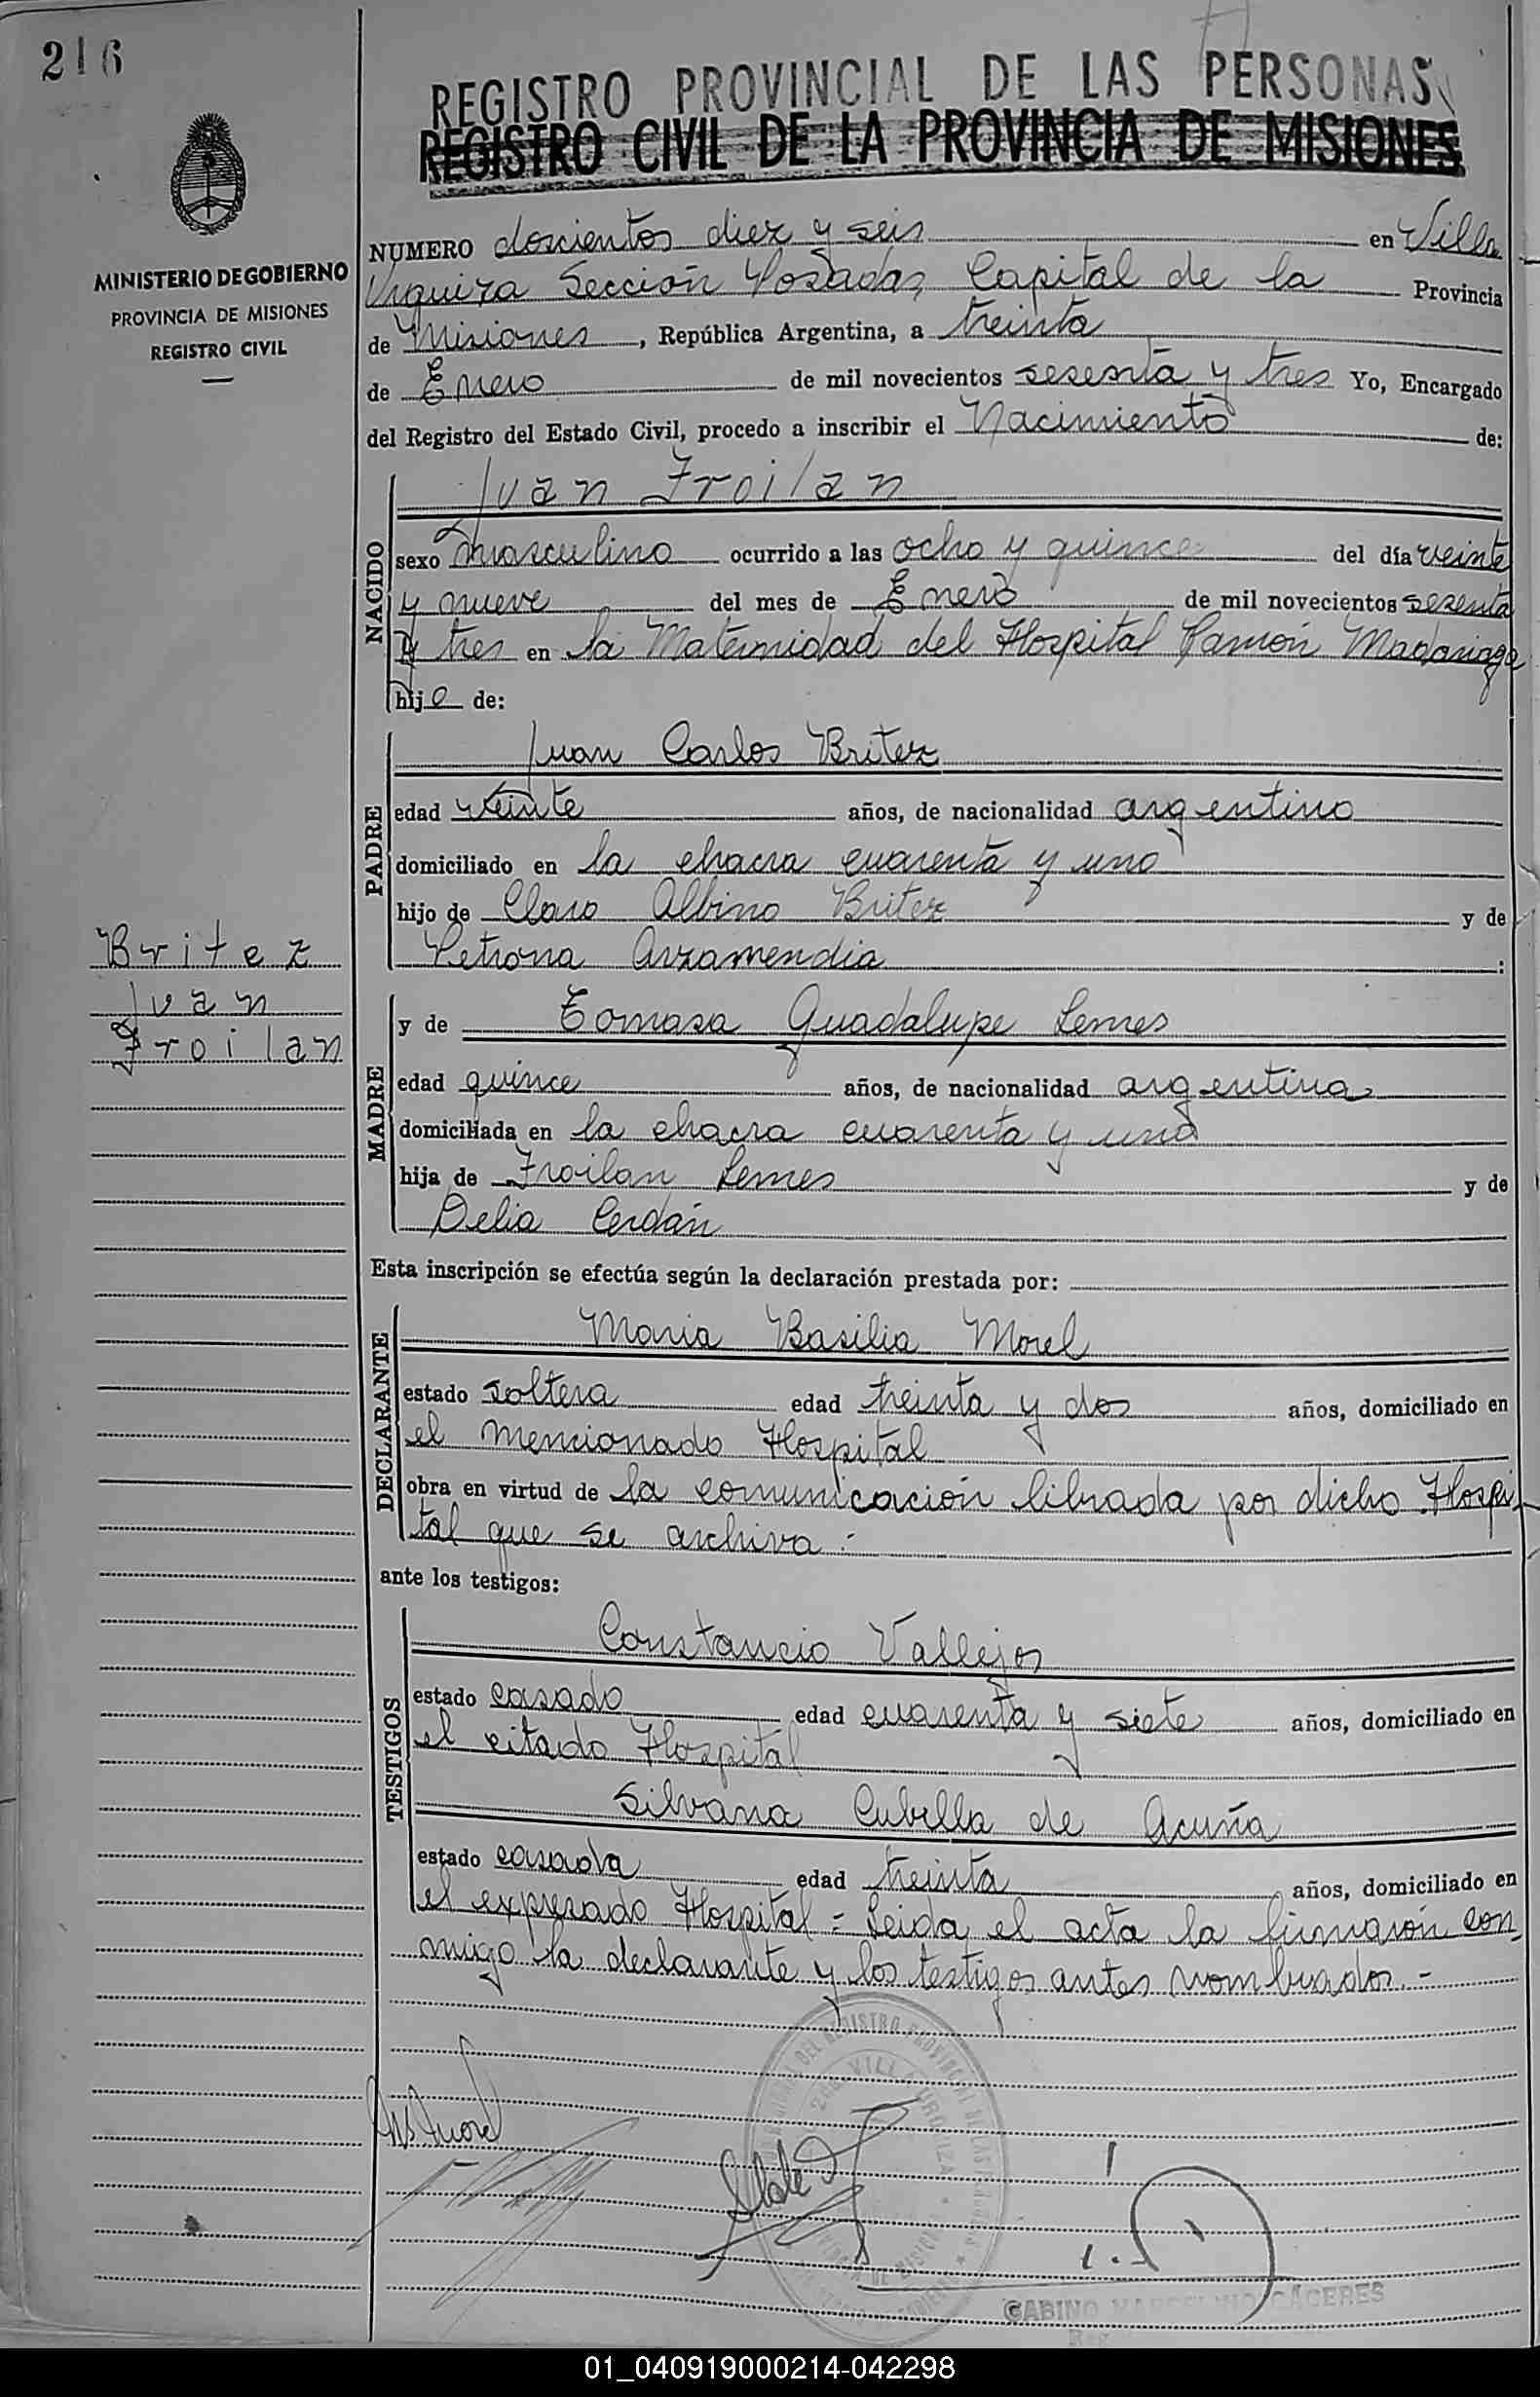 216
REGISTRO PROVINCIAL DE LAS PERSONAS
REGISTRO CIVIL DE LA PROVINCIA DE MISIONES
MINISTERIO DE GOBIERNO
PROVINCIA DE MISIONES
REGISTRO CIVIL
NUMERO doscientos diez y seis en Villa
Urquiza Sección Posadas, Capital de la Provincia
de Misiones, República Argentina, a treinta
de Enero de mil novecientos sesenta y tres Yo, Encargado
del Registro del Estado Civil, procedo a inscribir el Nacimiento de:
NACIDO
Juan Froilan
sexo masculino ocurrido a las ocho y quince del día veinte
y nueve del mes de Enero de mil novecientos sesenta
y tres en la Maternidad del Hospital Ramón Madariaga
hijo de:
PADRE
Juan Carlos Britez
edad veinte años, de nacionalidad argentino
domiciliado en la chacra cuarenta y uno
hijo de Claro Albino Britez y de
Petrona Arzamendia :
Britez
Juan
Froilan
MADRE
y de Tomasa Guadalupe Lemes
edad quince años, de nacionalidad argentina
domiciliada en la chacra cuarenta y uno
hija de Froilan Lemes y de
Delia Cerdán
Esta inscripción se efectúa según la declaración prestada por:
DECLARANTE
Maria Basilia Morel
estado soltera edad treinta y dos años, domiciliado en
el mencionado Hospital
obra en virtud de la comunicación librada por dicho Hospi-
tal que se archiva.-
ante los testigos:
TESTIGOS
Constancio Vallejos
estado casado edad cuarenta y siete años, domiciliado en
el citado Hospital
Silvana Cubilla de Acuña
estado casada edad treinta años, domiciliado en
el expresado Hospital = Leida el acta la firmarón con-
migo la declarante y los testigos antes nombrados.-
GABINO MARCELINO CÁCERES
01_040919000214-042298